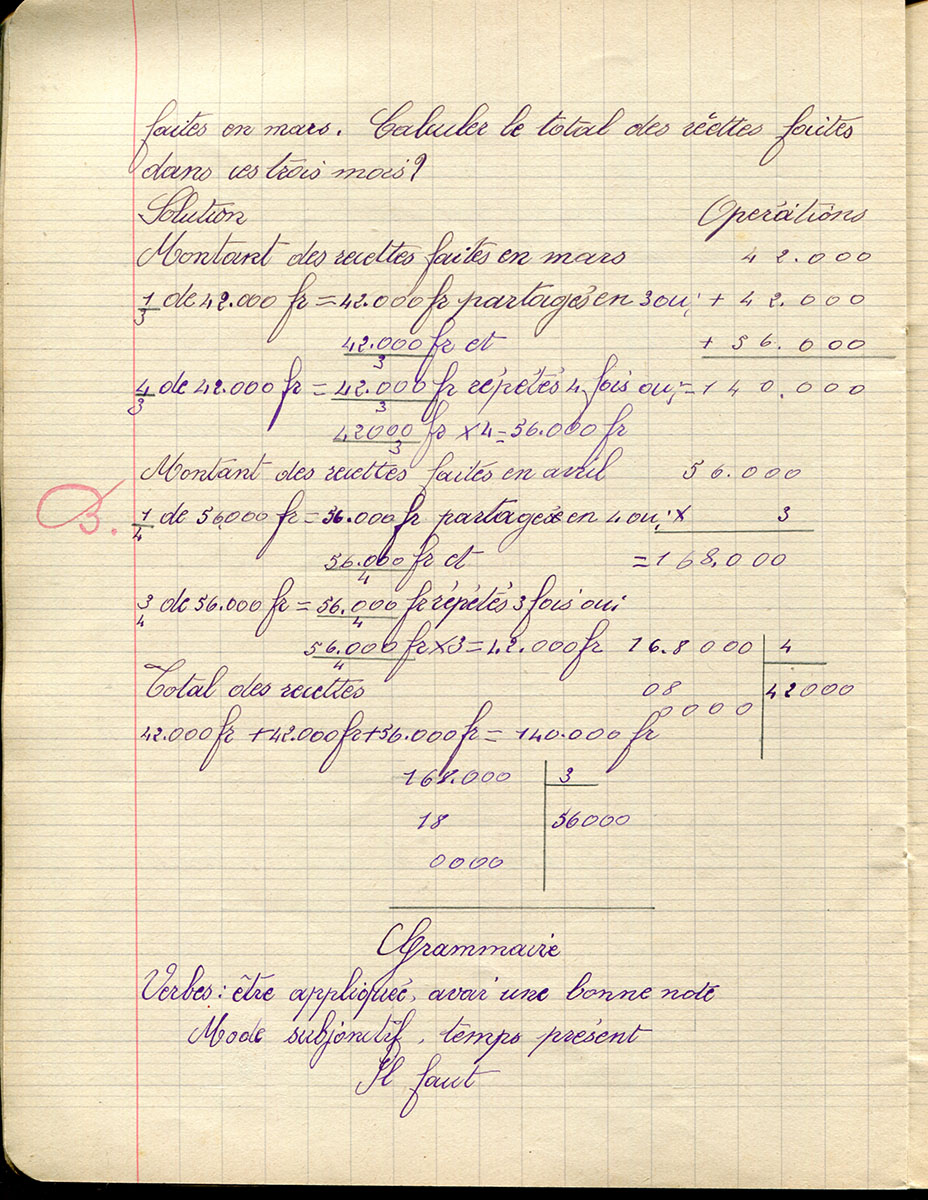 faites en mars. Calculer le total des récttes faites
dans ces trois mois?
Solution Opérations
Montant des recettes faites en mars 42.000
1/3 de 42.000 fr = 42.000 fr partagés en 3 ou; + 42.000
42.000/3 fr et + 56.000
4/3 de 42.000 fr = 42.000/3 fr répétés 4 fois ou; = 140.000
42000/3 fr × 4 = 56.000 fr
Montant des recettes faites en avril 56.000
B.
1/4 de 56.000 fr = 56.000 fr partagés en 4 ou; × 3
56.000/4 fr et = 168.000
3/4 de 56.000 fr = 56.000/4 fr répétés 3 fois oui
56.000/4 fr × 3 = 42.000 fr 16.8000 4
Total des recettes 08 42000
0000
42.000 fr + 42.000 fr + 56.000 fr = 140.000 fr
168.000 3
18 56000
0000
Grammaire
Verbes: être appliquée, avoir une bonne note
Mode subjonctif, temps présent
Il faut